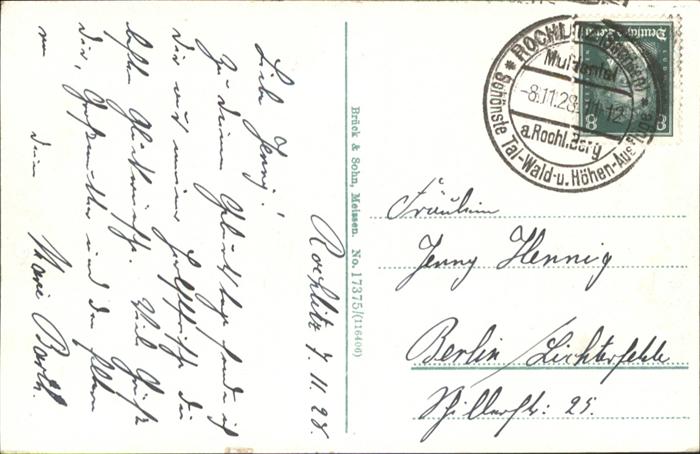 Rochlitz 7.11.28.
Liebe Jenny!
Zu deinem Geburtstage sende ich
Dir aus meiner die
besten Glückwünsche. Viele Grüße
Dir, Großmutter und den Eltern
von deiner Marie Barth.
Brück & Sohn, Meissen. No. 17375/(116406)
ROCHLITZ (Sachsen)
Muldental
-8.11.28.11-12
a.Rochl.Berg
* Schönste Tal-Wald-u.Höhen-Ausflüge *
Deutsches Reich
8 8
Fräulein
Jenny Hennig
Berlin/Lichterfelde
Schillerstr: 25.